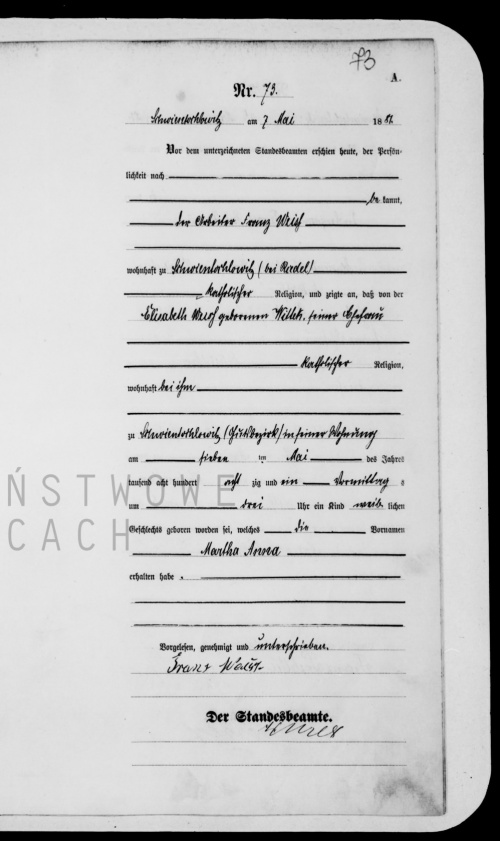 73
A.
Nr. 73.
Schwientochlowitz am 7 Mai 1881
Vor dem unterzeichneten Standesbeamten erschien heute, der Persön-
lichkeit nach
be kannt,
der Arbeiter Franz
wohnhaft zu Schwientochlowitz (bei Radel)
katholischer Religion, und zeigte an, daß von der
Elisabeth geborenen Wittek, seiner Ehefrau
katholischer Religion,
wohnhaft bei ihm
zu Schwientochlowitz (Gutsbezirk) in seiner Wohnung
am sieben ten Mai des Jahres
tausend acht hundert acht zig und ein Vormittag s
um drei Uhr ein Kind weib lichen
Geschlechts geboren worden sei, welches die Vornamen
Martha Anna
erhalten habe.
Vorgelesen, genehmigt und unterschrieben.
Franz
Der Standesbeamte.
ŃSTWOWE
CACH